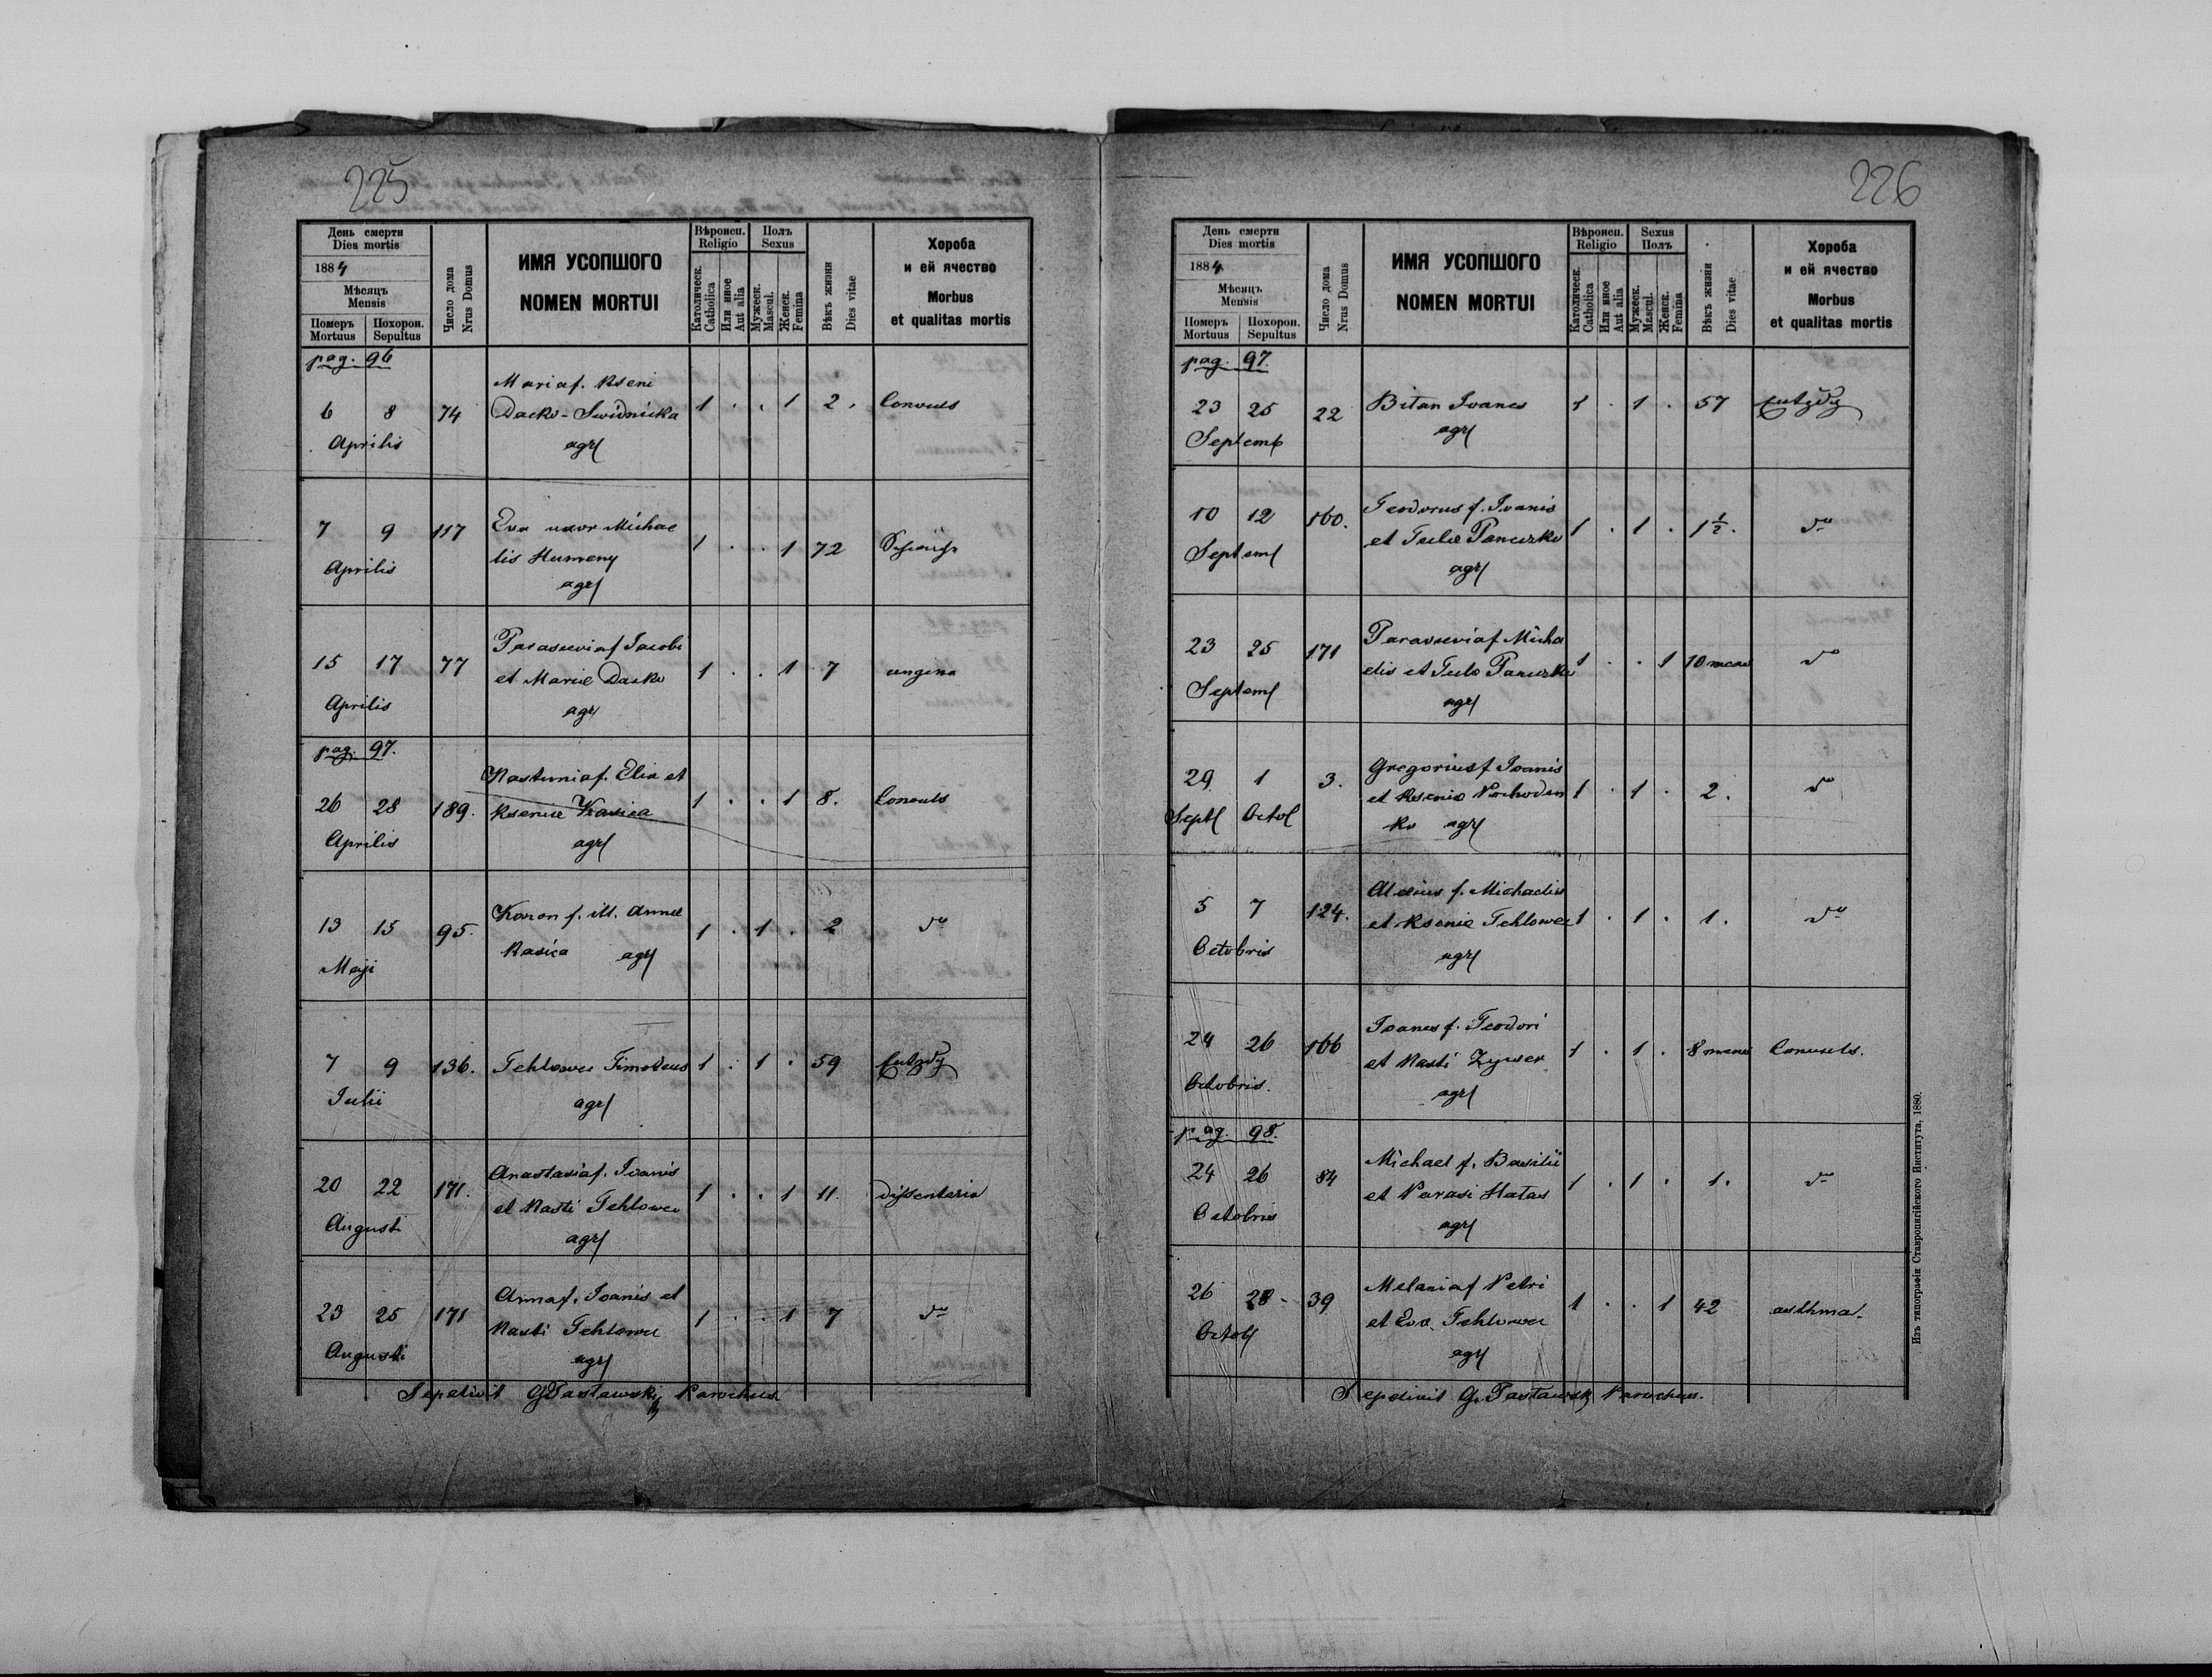 225
День смерти
Dies mortis
1884
Мѣсяць
Mensis
Померъ Похорон.
Mortuus Sepultus
Число дома
Nrus Domus
ИМЯ УСОПШОГО
NOMEN MORTUI
Вѣроисп.
Religio
Католическ.
Catholica
Или иное
Aut alia
Полъ
Sexus
Мужеск.
Mascul.
Женск.
Femina
Вѣкъ жизни
Dies vitae
Хороба
и ей ячество
Morbus
et qualitas mortis
pag. 96
Maria f. Kseni
6 8 74 Dacko-Swidnicka 1 . . 1 2. Convuls
Aprilis agr
7 9 117 Eva uxor Michae 1 . . 1 72
lis Humeny
Aprilis agr
Parascevia f Jacobi
15 17 77 et Mariae Dacko 1 . . 1 7 angina
Aprilis agr
pag. 97.
Nastunia f. Elia et
26 28 189. Kseniae Kasica 1 . . 1 8. Convuls
Aprilis agr
13 15 95. f. ill. Annae 1 . 1 . 2 do
Kasica agr
Maji
7 9 136. Tehlowec Timoteus 1 . 1 . 59
Julii agr
Anastasia f. Ioanis
20 22 171. et Nasti Tehlowec 1 . . 1 11. dissenteria
Augusti agr
Anna f. Ioanis et
23 25 171 Nasti Tehlowec 1 . . 1 7 do
Augusti agr
Sepelivit G Pastawski Parochus
226
День смерти
Dies mortis
1884
Мѣсяць
Mensis
Померъ Похорон.
Mortuus Sepultus
Число дома
Nrus Domus
ИМЯ УСОПШОГО
NOMEN MORTUI
Вѣроисп.
Religio
Католическ.
Catholica
Или иное
Aut alia
Sexus
Полъ
Мужеск.
Mascul.
Женск.
Femina
Вѣкъ жизни
Dies vitae
Хороба
и ей ячество
Morbus
et qualitas mortis
pag. 97.
23 25 22 Bitan Ioanes 1 . 1 . 57
Septemb agr
Teodorus f. Ioanis
10 12 160. et Teclae Panczko 1 . 1 . 1½. do
Septem agr
Parascevia f Micha
23 25 171 elis et Teclae Panczko 1 . . 1 10 mens do
Septem agr
Gregorius f Ioanis
29 1 3. et Kseniae Pochoden 1 . 1 . 2. do
Sept Octob ko agr
Alexius f. Michaelis
5 7 124. et Kseniae Tehlowec 1 . 1 . 1. do
Octobris agr
Ioanes f. Teodori
24 26 166 et Nasti 1 . 1 . 8 mens Convuls.
Octobris. agr
pag. 98.
Michael f. Basilii
24 26 84 et Parasi Hatas 1 . 1 . 1. do
Octobris agr
Melania f Petri
26 28 39 et Eva Tehlowec 1 . . 1 42 asthma.
Octob agr
Sepelivit G. Pastawski Parochus.
Изъ типографіи Ставропигійского Института, 1880.